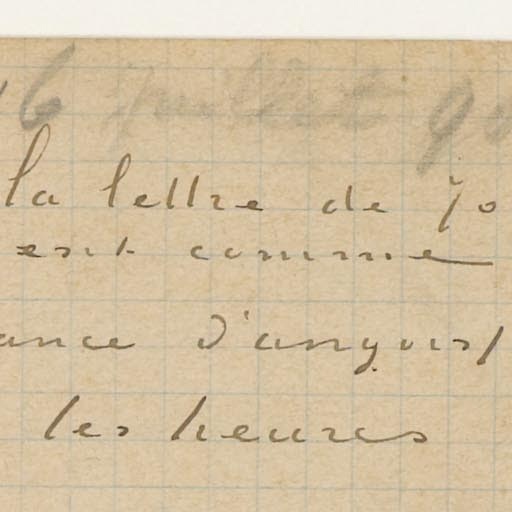 16 juillet 90
la lettre de Jo
est comme
ance d'angoiss
les heures